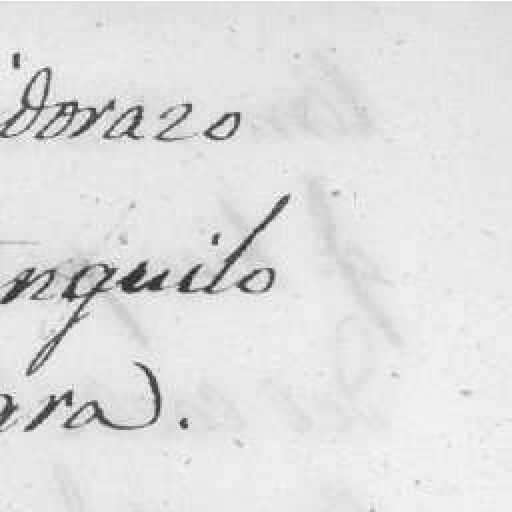 idorazo
nguilo
ara).